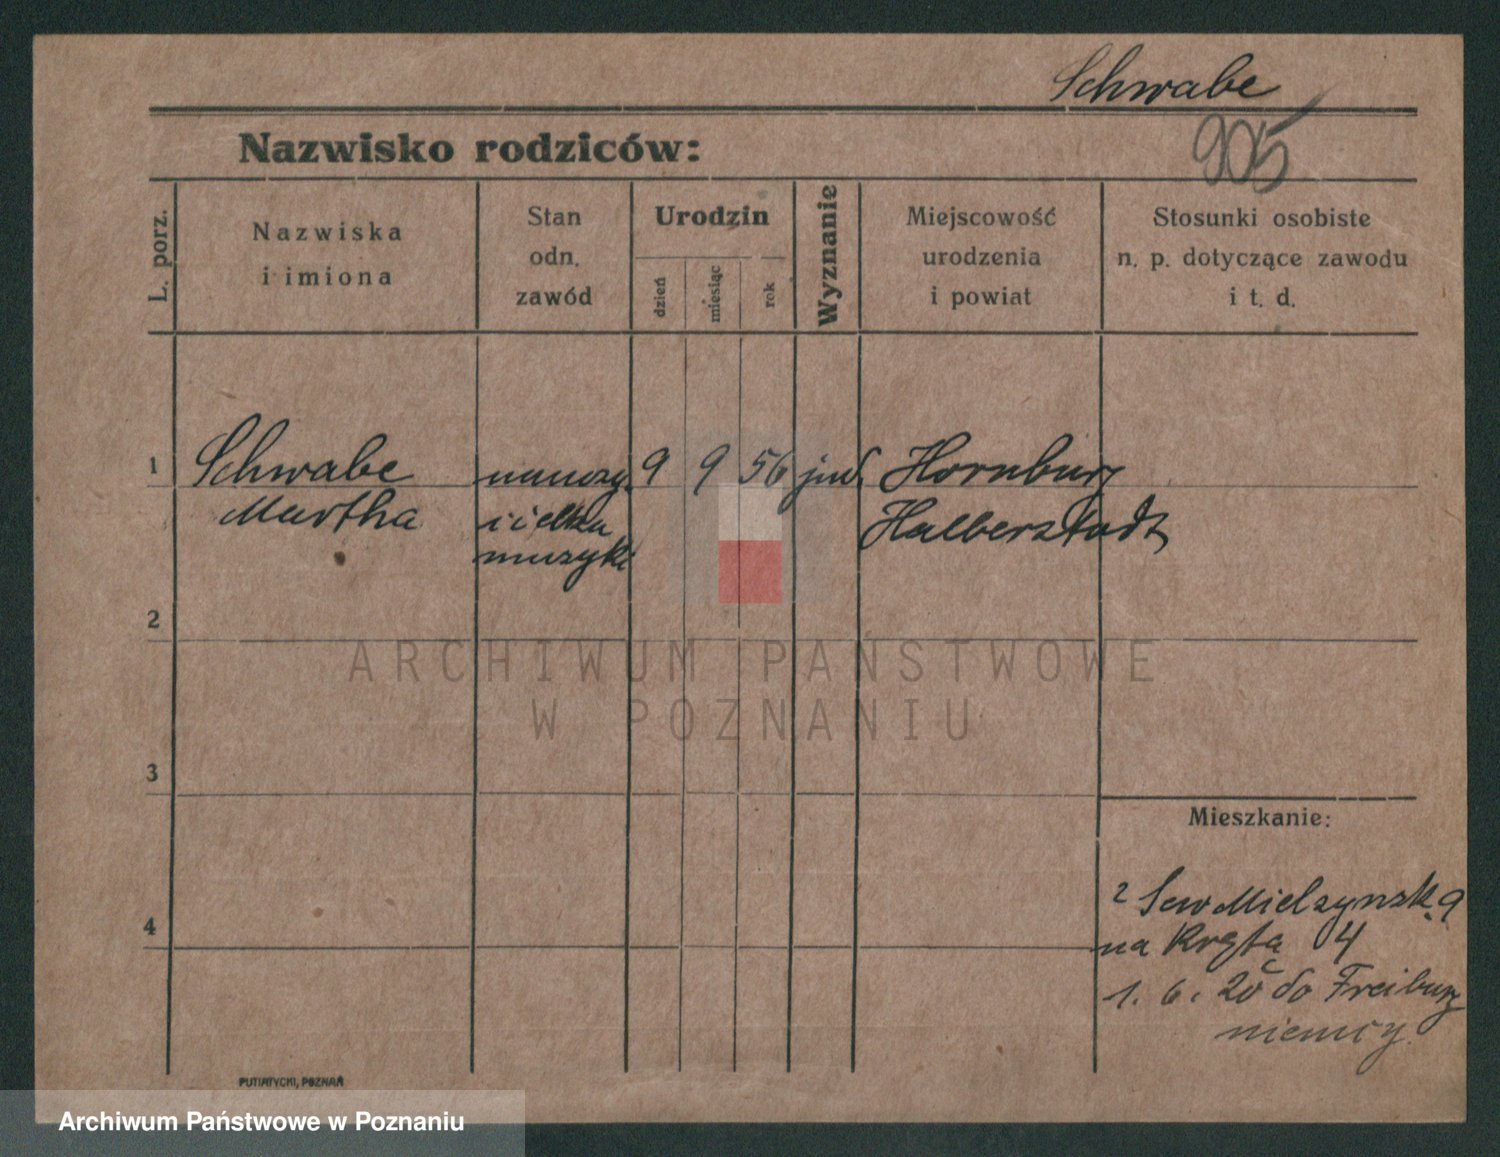 Schwabe
905
Nazwisko rodziców:
L. porz.
Nazwiska
i imiona
Stan
odn.
zawód
Urodzin
dzień
miesiąc
rok
Wyznanie
Miejscowość
urodzenia
i powiat
Stosunki osobiste
n. p. dotyczące zawodu
i t. d.
1
Schwabe nauczy 9 9 56 jud. Hornburg
Martha icielka Halberstadt
muzyki
2
ARCHIWUM PAŃSTWOWE
W POZNANIU
3
Mieszkanie:
4
2 Sew Mielzynsk. 9
na Krętą 4
1. 6. 20 do Freiburg
niemcy
PUTIATYCKI, POZNAŃ
Archiwum Państwowe w Poznaniu